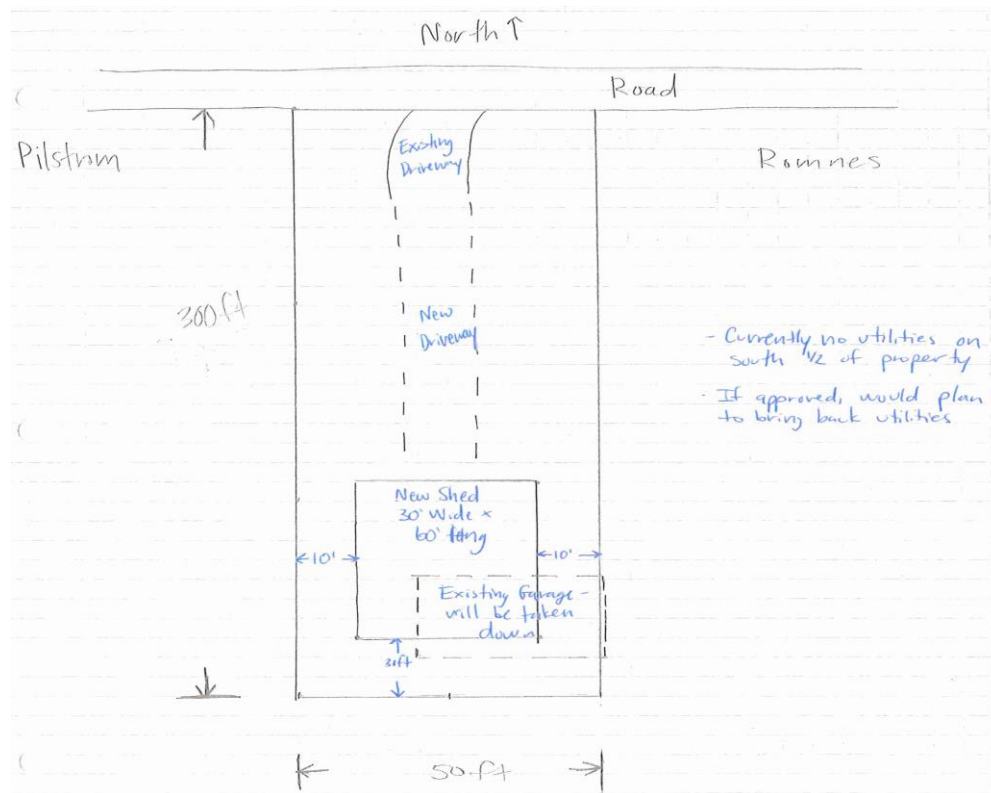 North ↑
Road
Pilstrom
Romnes
Existing
Driveway
300ft
New
Driveway
- Currently no utilities on
south 1/2 of property
- If approved, would plan
to bring back utilities
New Shed
30' Wide x
60' long
←10'→
←10'→
Existing Garage -
will be taken
down
30ft
50ft